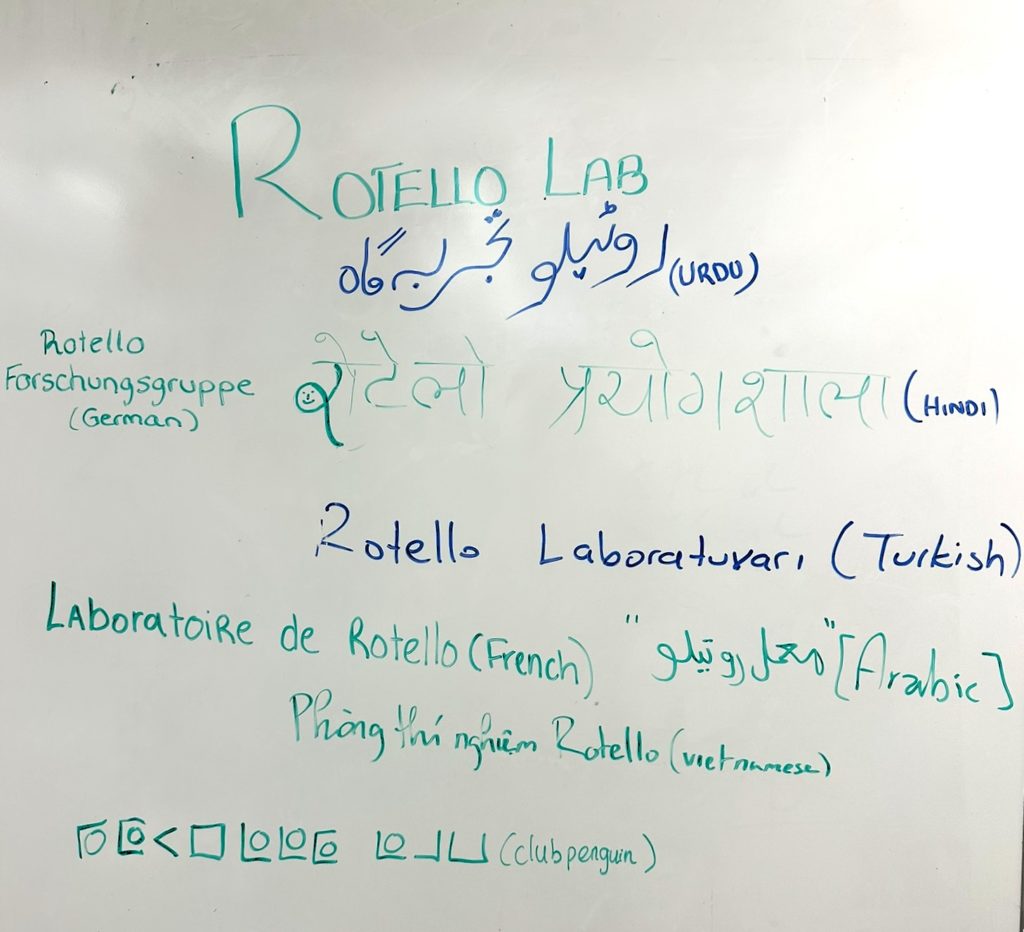 ROTELLO LAB
روٹیلو تجربہ گاہ (URDU)
Rotello
Forschungsgruppe
(German)
रोटेलो प्रयोगशाला (HINDI)
Rotello Laboratuvarı (Turkish)
Laboratoire de Rotello (French)
"معمل روتيلو" [Arabic]
Phòng thí nghiệm Rotello (vietnamese)
(clubpenguin)